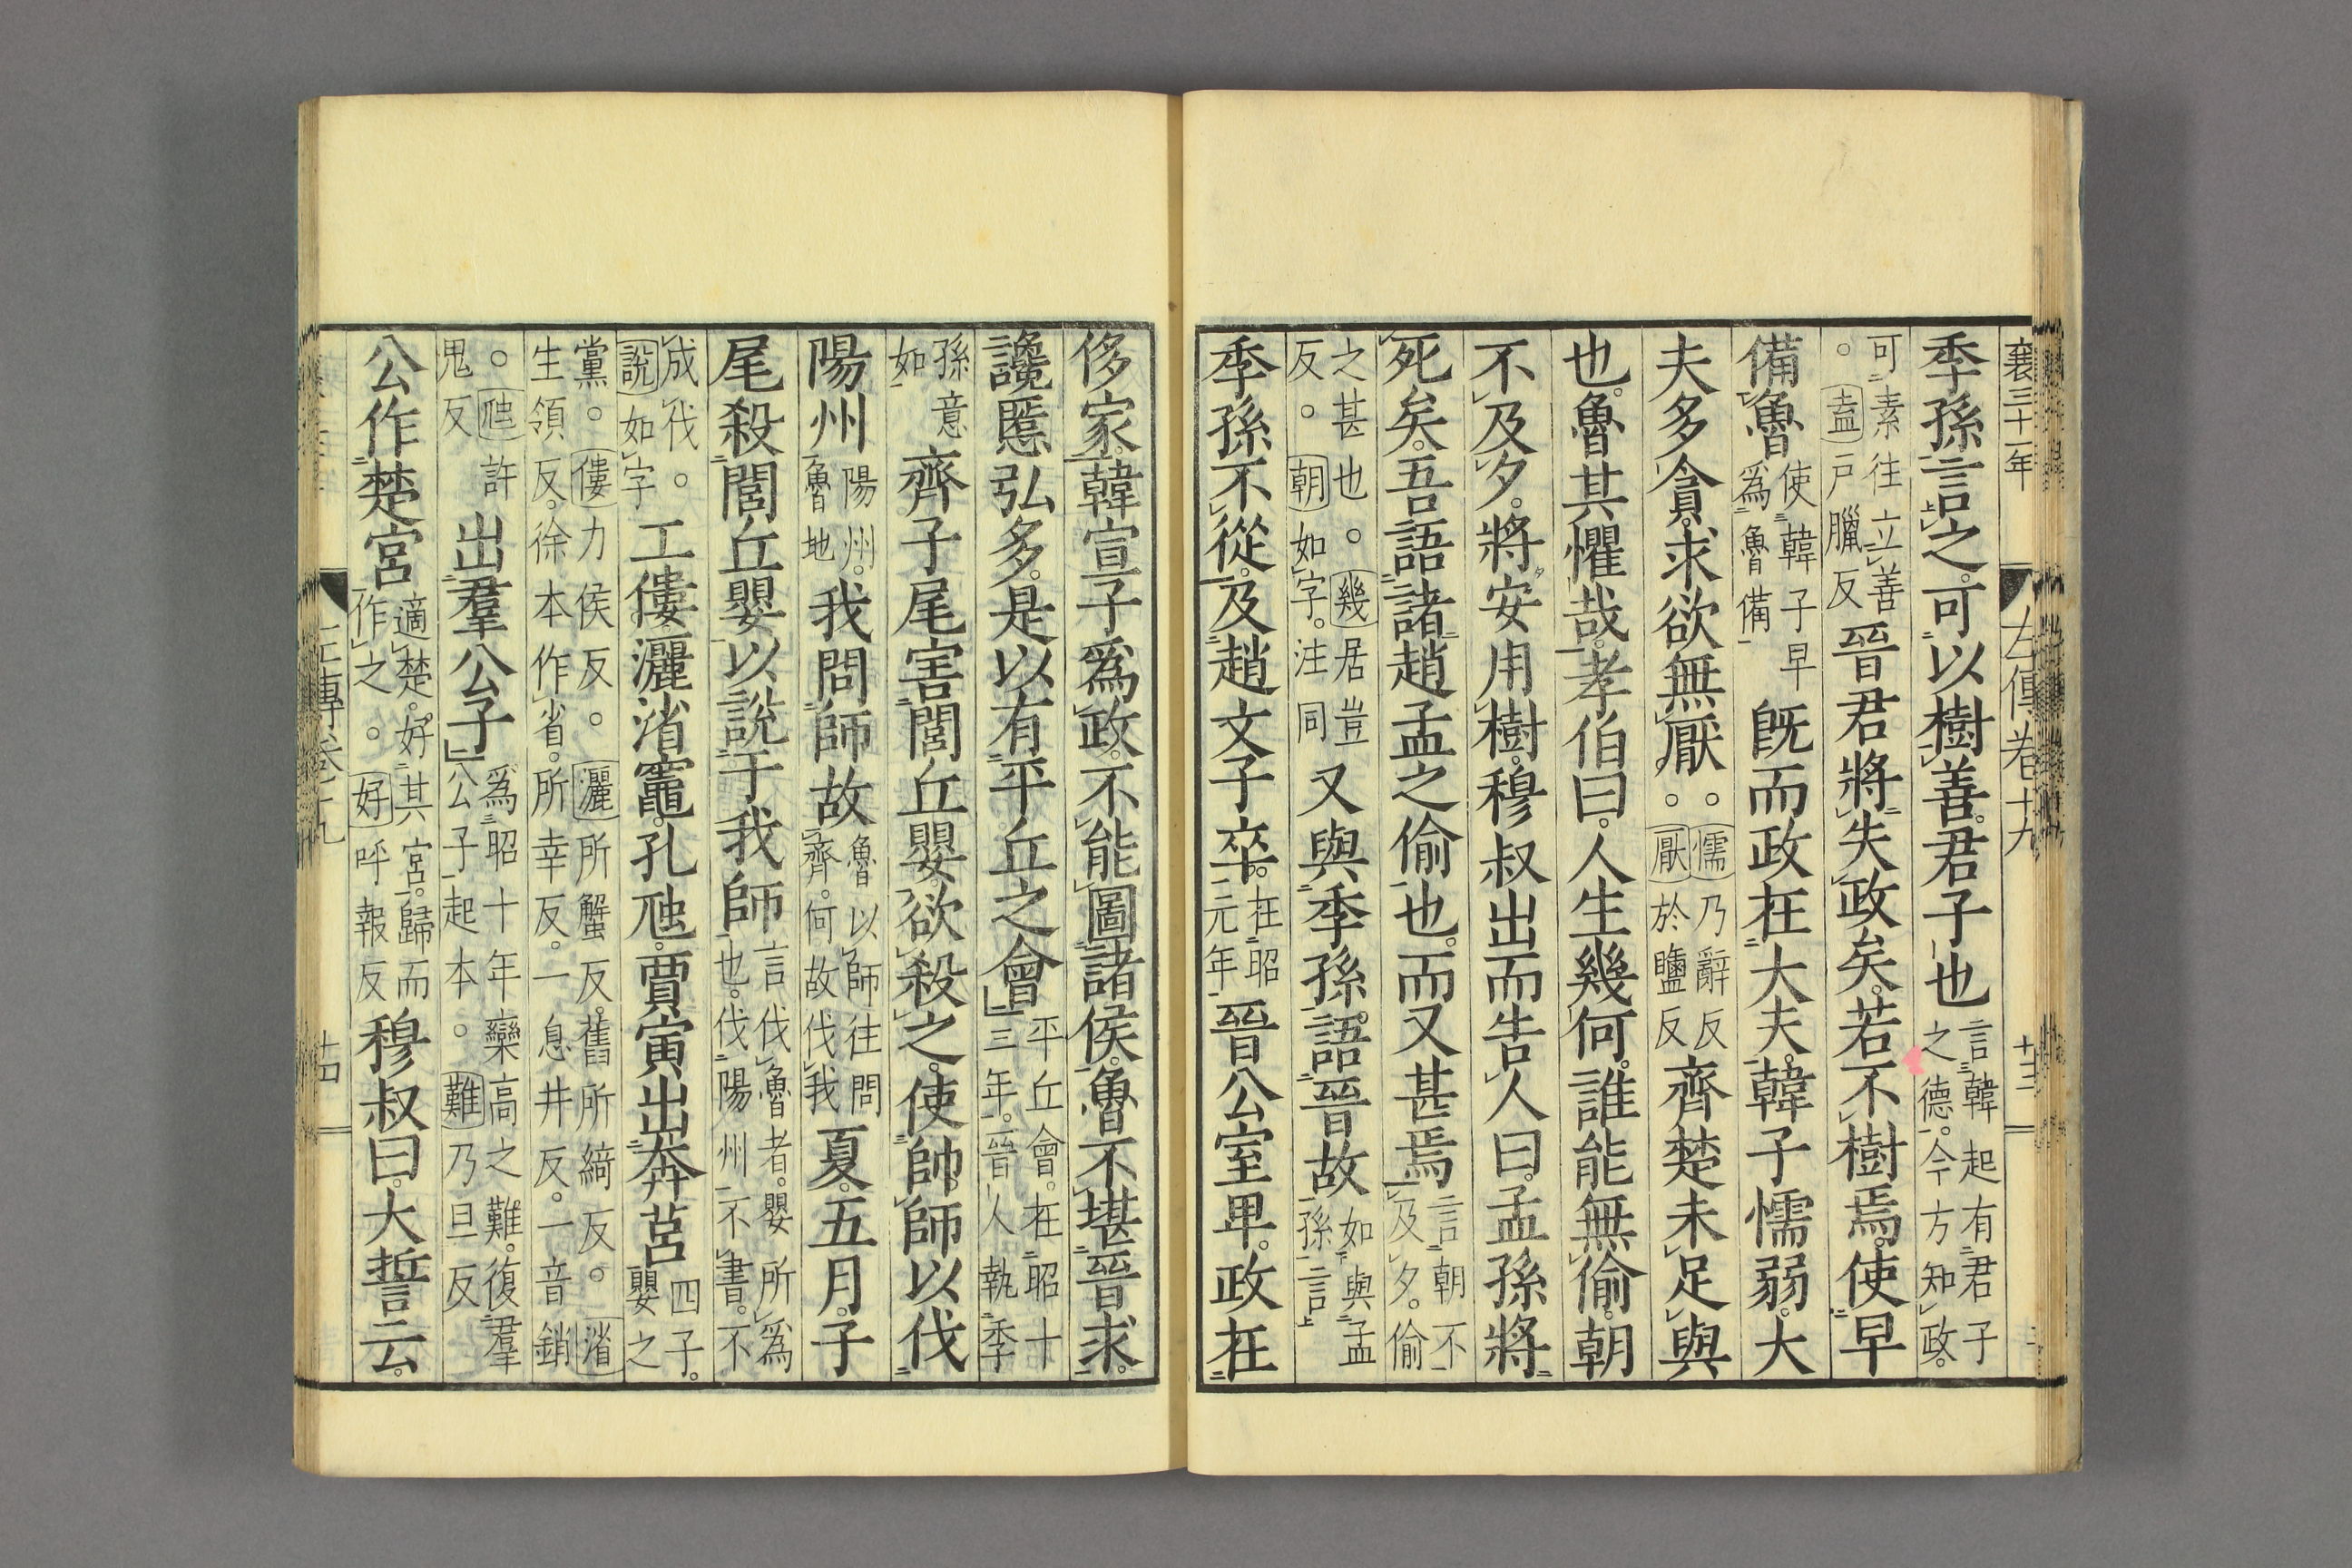 襄三十一年 左傳卷十九 十三
季孫言之可以樹善君子也言韓起有君子之德今方知政
可素往立善。盍戶臘反晉君將失政矣若不樹焉使早
備魯使韓子早爲魯備既而政在大夫韓子懦弱大
夫多貪求欲無厭。懦乃辭反。厭於鹽反齊楚未足與
也魯其懼哉孝伯曰人生幾何誰能無偷朝
不及夕將安用樹穆叔出而告人曰孟孫將
死矣吾語諸趙孟之偷也而又甚焉言朝不及夕偷
之甚也。幾居豈反。朝如字注同又與季孫語晉故如與孟孫言
季孫不從及趙文子卒在昭元年晉公室卑政在
侈家韓宣子爲政不能圖諸侯魯不堪晉求
讒慝弘多是以有平丘之會平丘會在昭十三年晉人執季
孫意如齊子尾害閭丘嬰欲殺之使帥師以伐
陽州陽州魯地我問師故魯以師往問齊何故伐我夏五月子
尾殺閭丘嬰以說于我師言伐魯者嬰所爲也伐陽州不書不
成伐。說如字工僂灑渻竈孔虺賈寅出奔莒四子嬰之
黨。僂力侯反。灑所蟹反舊所綺反。渻生領反徐本作省所幸反一息井反一音銷
。虺許鬼反出羣公子爲昭十年欒高之難復羣公子起本。難乃旦反
公作楚宮適楚好其宮歸而作之。好呼報反穆叔曰大誓云
十四